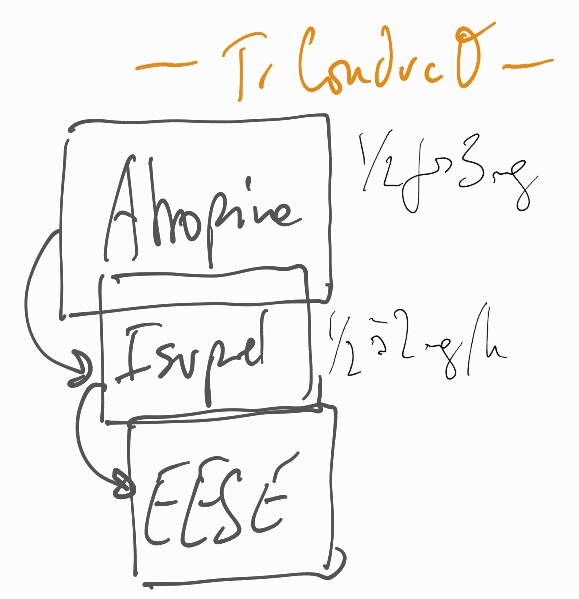 — Tr Conduc° —
Atropine
1/2 js 3 mg
Isupel
1/2 à 2 mg/h
EESE